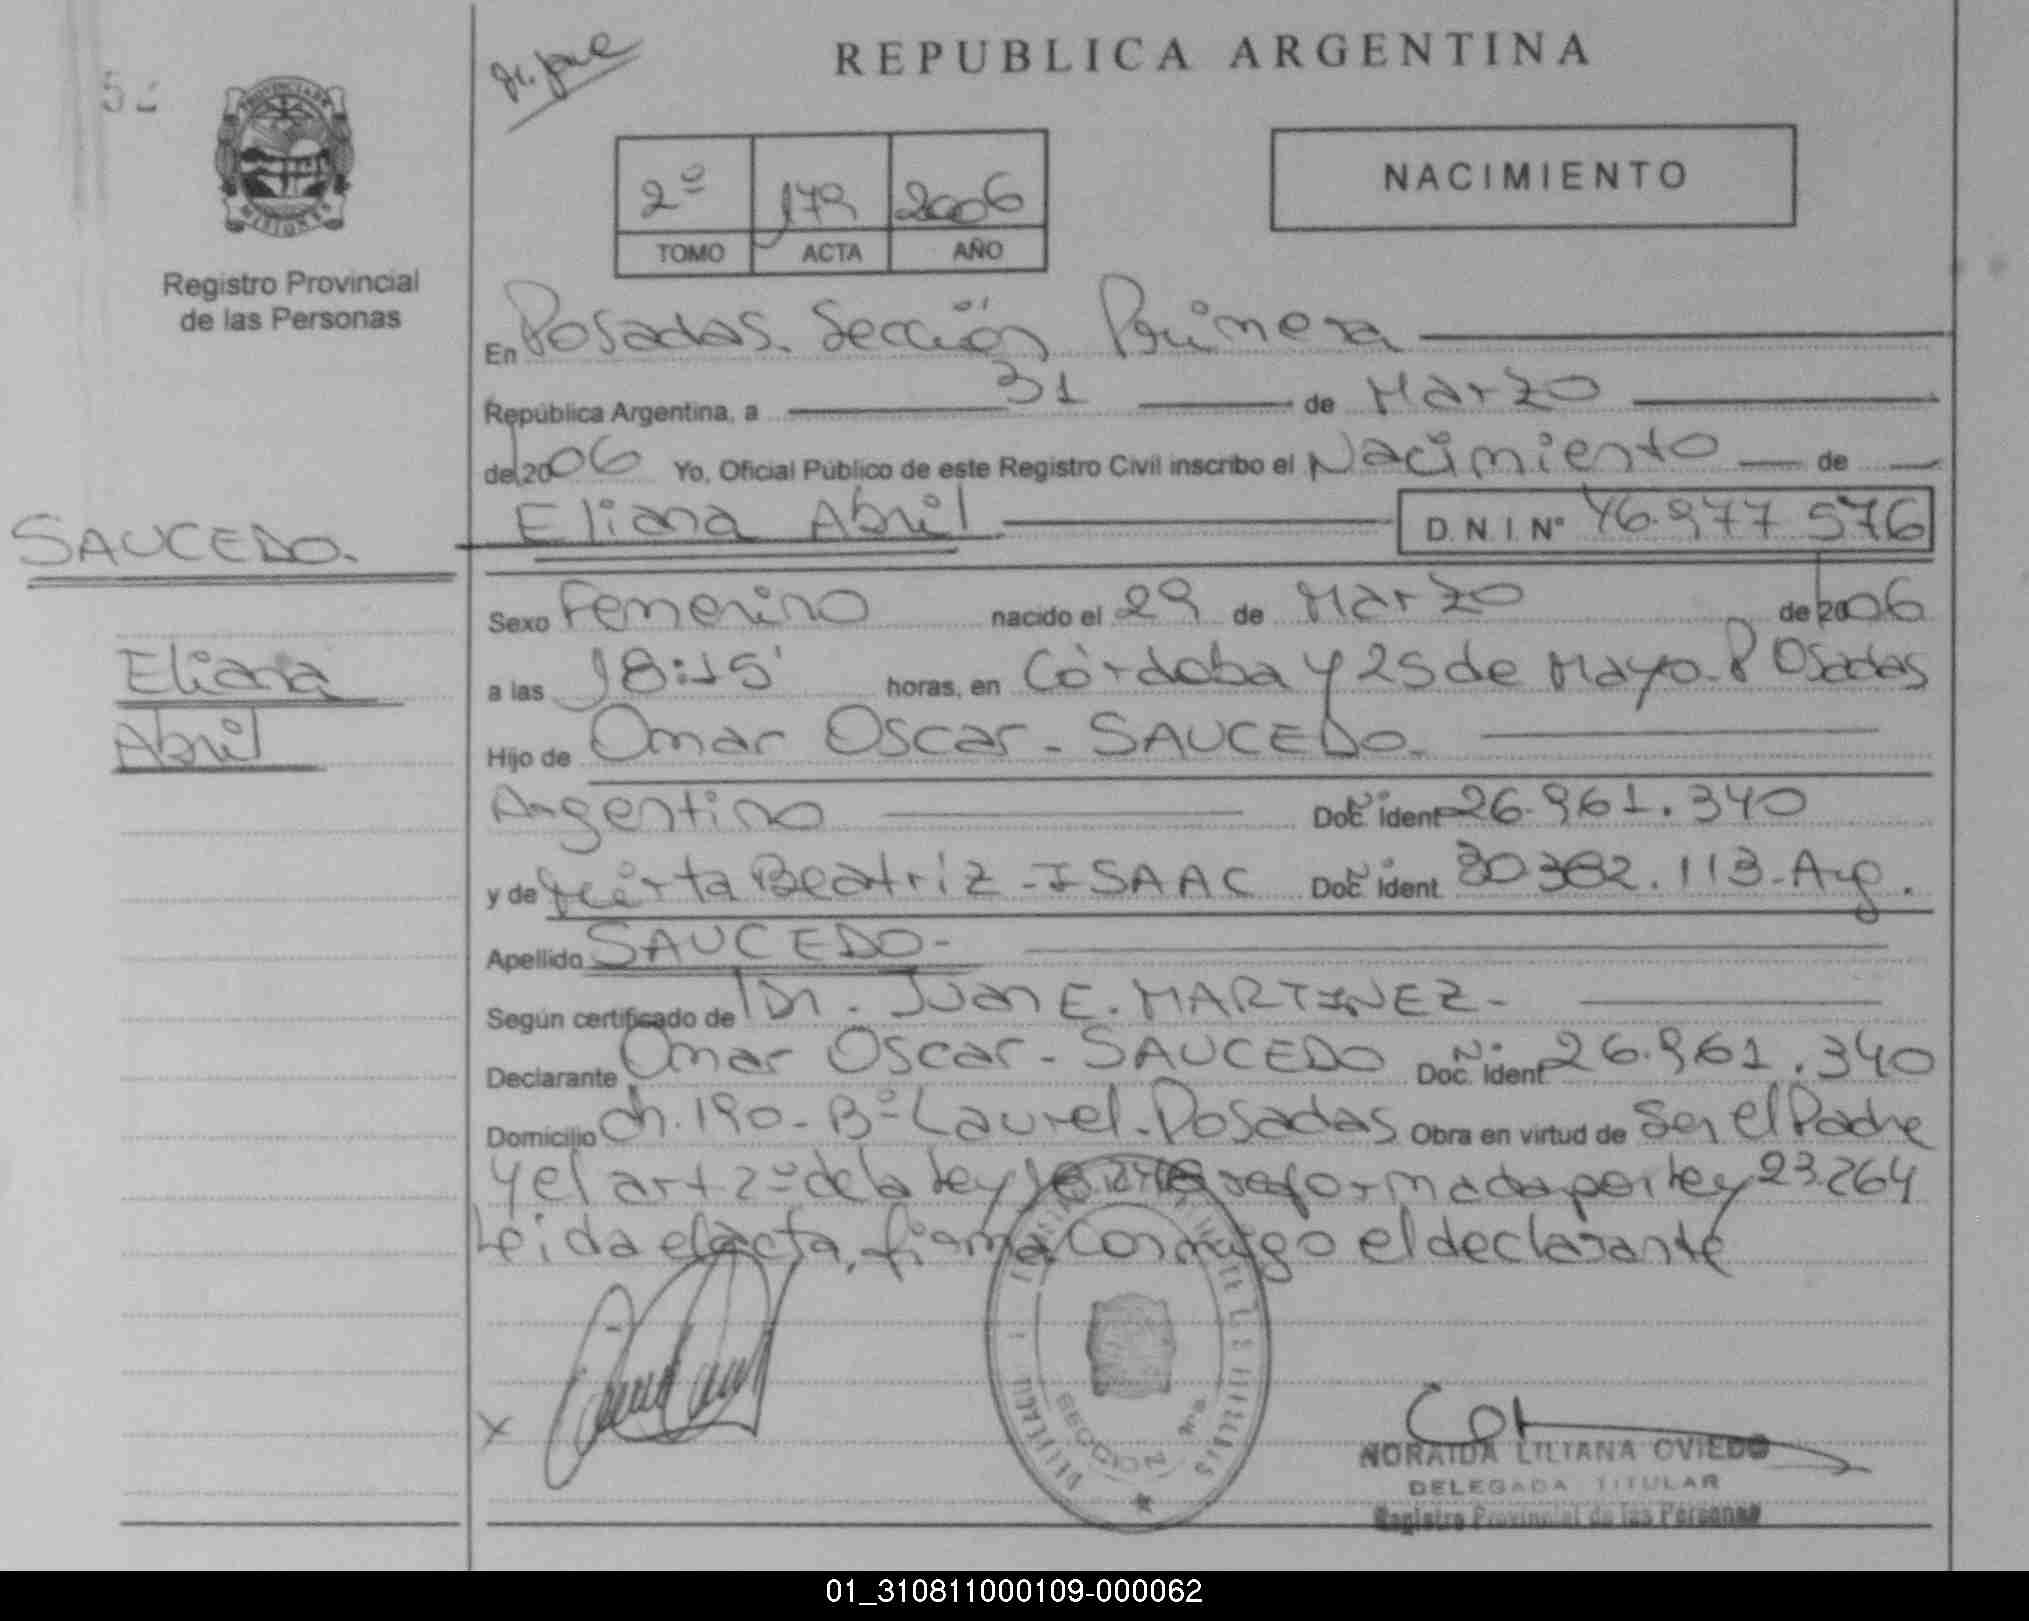 REPUBLICA ARGENTINA
PROVINCIA DE
MISIONES
Registro Provincial
de las Personas
2º 179 2006
TOMO ACTA AÑO
NACIMIENTO
En Posadas. Sección Primera
República Argentina, a 31 de Marzo
del 2006 Yo, Oficial Público de este Registro Civil inscribo el Nacimiento de
SAUCEDO.
Eliana
Abril
Eliana Abril D.N.I.Nº 46.977.576
Sexo Femenino nacido el 29 de Marzo de 2006
a las 18:15' horas, en Córdoba y 25 de Mayo-Posadas
Hijo de Omar Oscar - SAUCEDO.
Argentino Doc. Nº ident 26.961.340
y de Mirta Beatriz - ISAAC Doc. Nº ident. 30.382.113-Arg.
Apellido SAUCEDO-
Según certificado de Dr. Juan E. MARTINEZ-
Declarante Omar Oscar - SAUCEDO Doc. Nº ident 26.961.340
Domicilio Ch. 190 - Bº Laurel - Posadas Obra en virtud de Ser el Padre
y el art 2º de la Ley reformada por Ley 23.264
Leida el acta, firma conmigo el declarante
X
SECCION
NORAIDA LILIANA OVIEDO
DELEGADA TITULAR
Registro Provincial de las Personas
01_310811000109-000062